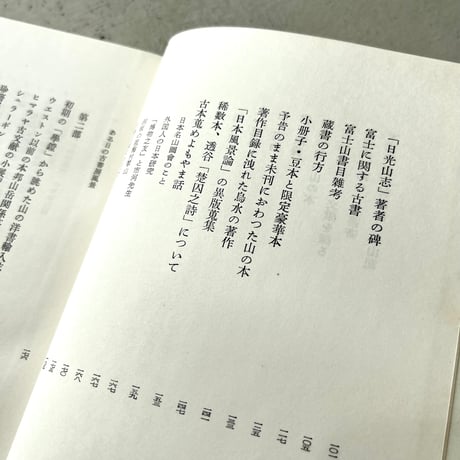 「日光山志」著者の碑
富士に関する古書
富士山書目雑考
蔵書の行方
小册子・豆本と限定豪華本
予告のまま未刊におわった山の本
著作目録に洩れた烏水の著作
「日本風景論」の異版蒐集
稀数本、透谷「楚囚之詩」について
古本蒐めよもやま話
日本名山圖會のこと
外国人の日本研究
一〇一
一〇五
一二七
一三五
一四一
一四七
一五三
一六七
一六八
一七〇
第二部
初期の「學鐙」から眺めた山の洋書輸入史
ウエストン以前の日本山岳関係
ヒマラヤ古文献の小展望
シュラーギン